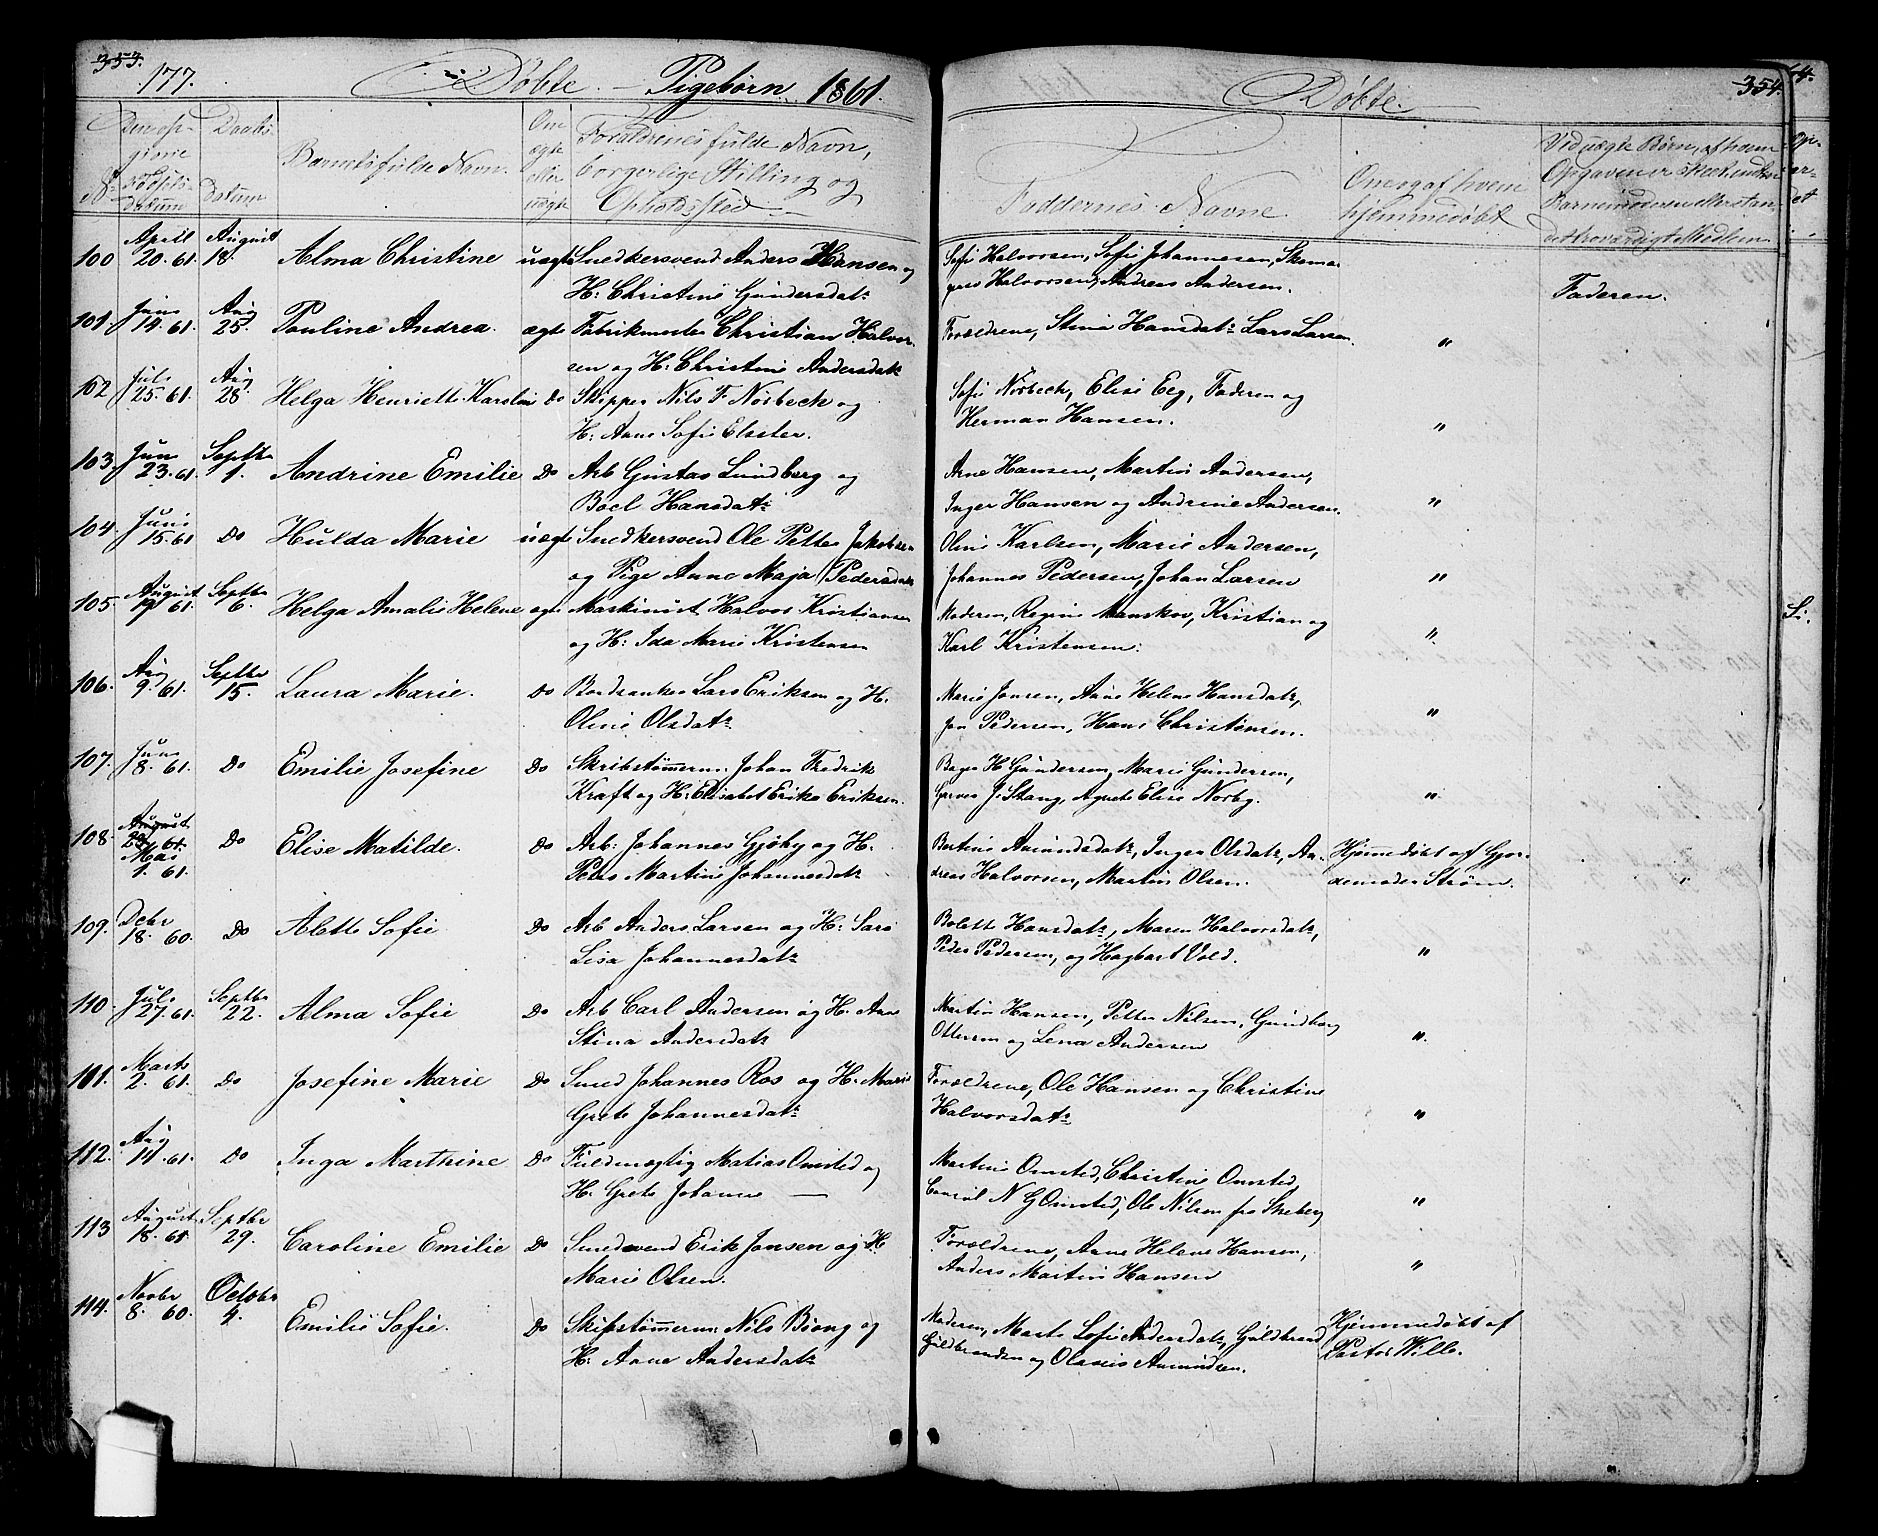 353.
177. Døbte. — Pigebørn 1861.
Døbte. 354.
No
Den op-
givne
Fødsels-
datum
Daabs-
datum
Barnets fulde Navn.
Om
ægte
eller
uægte
Forældrenes fulde Navn,
borgerlige Stilling og
Opholdssted
Faddernes Navne.
Om og af hvem
hjemmedøbt
Ved uægte Børn, af hvem
Opgaven er skeet
100 April 20. 61. August 18. Alma Christine uægte Snedkersvend Anders Hansen og
H: Christine Gundersdatr
Sofi Halvorsen, Sofi Johannesen, Skoma-
ger Halvorsen, Andreas Andersen.
Faderen.
101. Juni 14. 61. Aug 25. Pauline Andrea. ægte Fabrikmester Christian Halvor-
sen og H: Christine Andersdatr
Forældrene, Stine Hansdatr Lars Larsen. "
102 Juli 25. 61. Aug 28. Helga Henriette Karoline do Skipper Nils F. Nørbeck og
H: Anne Sofie Elster.
Sofi Nørbeck, Elise Eeg, Faderen og
Herman Hansen. "
103. Juni 23. 61. Septbr 1. Andrine Emilie Do Arb Gustav Lundberg og
Boel Hansdatr
Arne Hansen, Martin Andersen,
Inger Hansen og Andrine Andersen. "
104. Juni 15. 61 Do Hulda Marie uægte Snedkersvend Ole Petter Jakobsen
og Pige Anne Maja Pedersdatr
Oline Karlsen, Marie Andersen,
Johannes Pedersen, Johan Larsen "
105. August 19 61. Septbr 6. Helga Amalie Helene ægte Maskinist Halvor Kristiansen
og H: Ida Marie Kristensen
Moderen, Regine Manskov, Kristian og
Karl Kristensen. "
106. Aug 9. 61. Septbr 15. Laura Marie. do Lars Eriksen og H.
Oline Olsdatr
Marie Jansen, Anne Helene Hansdatr,
Jan Pedersen, Hans Christensen. "
107. Juni 8. 61. Do Emilie Josefine Do Skibstømmerm. Johan Fredrik
Kraft og H: Elisabet Erika Eriksen.
Bager H Gundersen, Marie Gundersen,
Garver J. Stang, Agnete Elise Norby. "
108. August 25. 61. Mai 1. 61. Do Elise Matilde. do Arb: Johannes Gjøby og H.
Petra Martine Johannesdatr
Bertine Amundsdatr, Inger Olsdatr, An-
dreas Halvorsen, Martin Olsen.
Hjemmedøbt af Gjor-
demoder Strøm.
109. Debr 18. 60. Do Alette Sofie Do Arb Anders Larsen og H: Sara
Lisa Johannesdatr
Bolette Hansdatr, Maren Halvorsdatr,
Peder Pedersen, og Hagbart Vold. "
110. Juli 27. 61. Septbr 22. Alma Sofie Do Arb Carl Andersen og H. Ane
Stina Andersdatr
Martin Hansen, Petter Nilsen, Gunborg
Ottersen og Lena Andersen ".
111. Marts 2. 61. Do Josefine Marie Do Smed Johannes Ros og H: Marie
Grete Johannesdatr
Forældrene, Ole Hansen og Christine
Halvorsdatr "
112. Aug 11. 61. Do Inga Marthine Do Fuldmægtig Matias Omsted og
H. Grete Johanne —
Martine Omsted, Christine Omsted,
Consul N G Omsted, Ole Nilsen fra Skeberg "
113 August 18. 61 Septbr 29. Caroline Emilie Do Smedsvend Erik Jansen og H.
Marie Olsen.
Forældrene, Anne Helene Hansen,
Anders Martin Hansen "
114. Novbr 8. 60. October 4. Emilie Sofie. Do Skibstømmerm: Nils Biong og
H. Anne Andersdatr
Moderen, Marte Sofie Andersdatr, Guldbrand
Guldbrandsen og Olaus Amundsen.
Hjemmedøbt af
Pastor Wille.